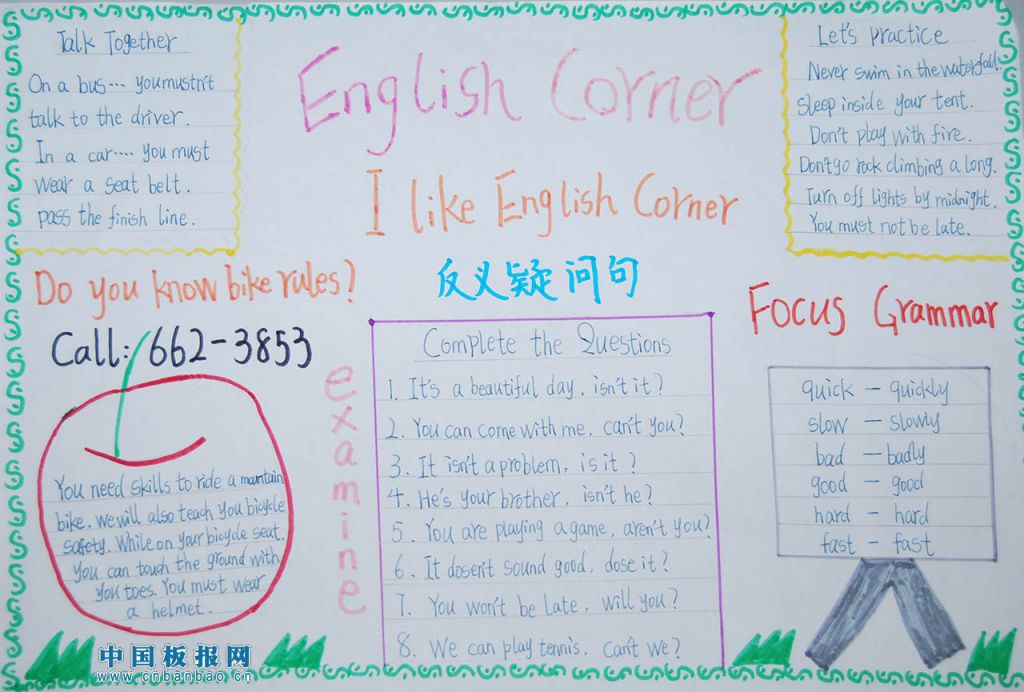 Talk Together
On a bus... you mustn't
talk to the driver.
In a car.... you must
wear a seat belt.
pass the finish line.
English Corner
I like English Corner
Let's practice
Never swim in the waterfall.
sleep inside your tent.
Don't play with fire.
Don't go rock climbing a long.
Turn off lights by midnight.
You must not be late.
Do you know bike rules?
Call: 662-3853
You need skills to ride a mantain
bike. we will also teach you bicycle
safety. While on your bicycle seat.
you can touch the ground with
you toes. You must wear
a helmet.
examine
反义疑问句
Complete the Questions
1. It's a beautiful day, isn't it?
2. You can come with me, can't you?
3. It isn't a problem, is it?
4. He's your brother, isn't he?
5. You are playing a game, aren't you?
6. It dosen't sound good, dose it?
7. You won't be late, will you?
8. We can play tennis, can't we?
Focus Grammar
quick - quickly
slow - slowly
bad - badly
good - good
hard - hard
fast - fast
中国板报网
www.cnbanbao.cn